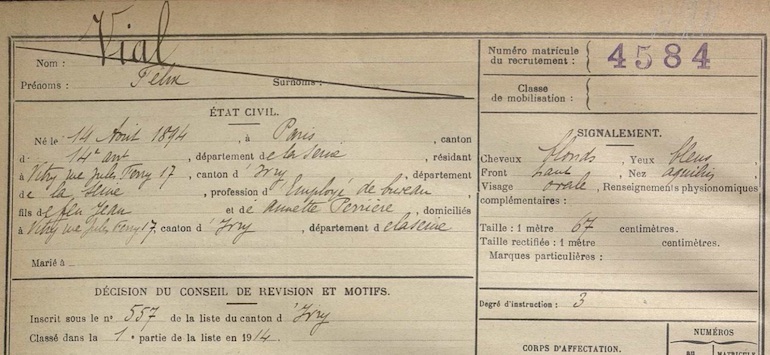 Nom : Vial
Prénoms : Félix Surnoms :
ÉTAT CIVIL.
Né le 14 Août 1894, à Paris, canton
d 14e arrt, département de la Seine, résidant
à Vitry rue Jules Ferry 17, canton d'Ivry, département
de la Seine, profession d'Employé de bureau,
fils de feu Jean et de Annette Perrière, domiciliés
à Vitry rue Jules Ferry 17, canton d'Ivry, département de la Seine
Marié à
DÉCISION DU CONSEIL DE REVISION ET MOTIFS.
Inscrit sous le no 557 de la liste du canton d'Ivry
Classé dans la 1e partie de la liste en 1914
Numéro matricule
du recrutement : 4584
Classe
de mobilisation :
SIGNALEMENT.
Cheveux blonds Yeux bleus
Front haut Nez aquilin
Visage ovale, Renseignements physionomiques
complémentaires :
Taille : 1 mètre 67 centimètres.
Taille rectifiée : 1 mètre centimètres.
Marques particulières :
Degré d'instruction : 3
CORPS D'AFFECTATION.
NUMÉROS
AU MATRICULE